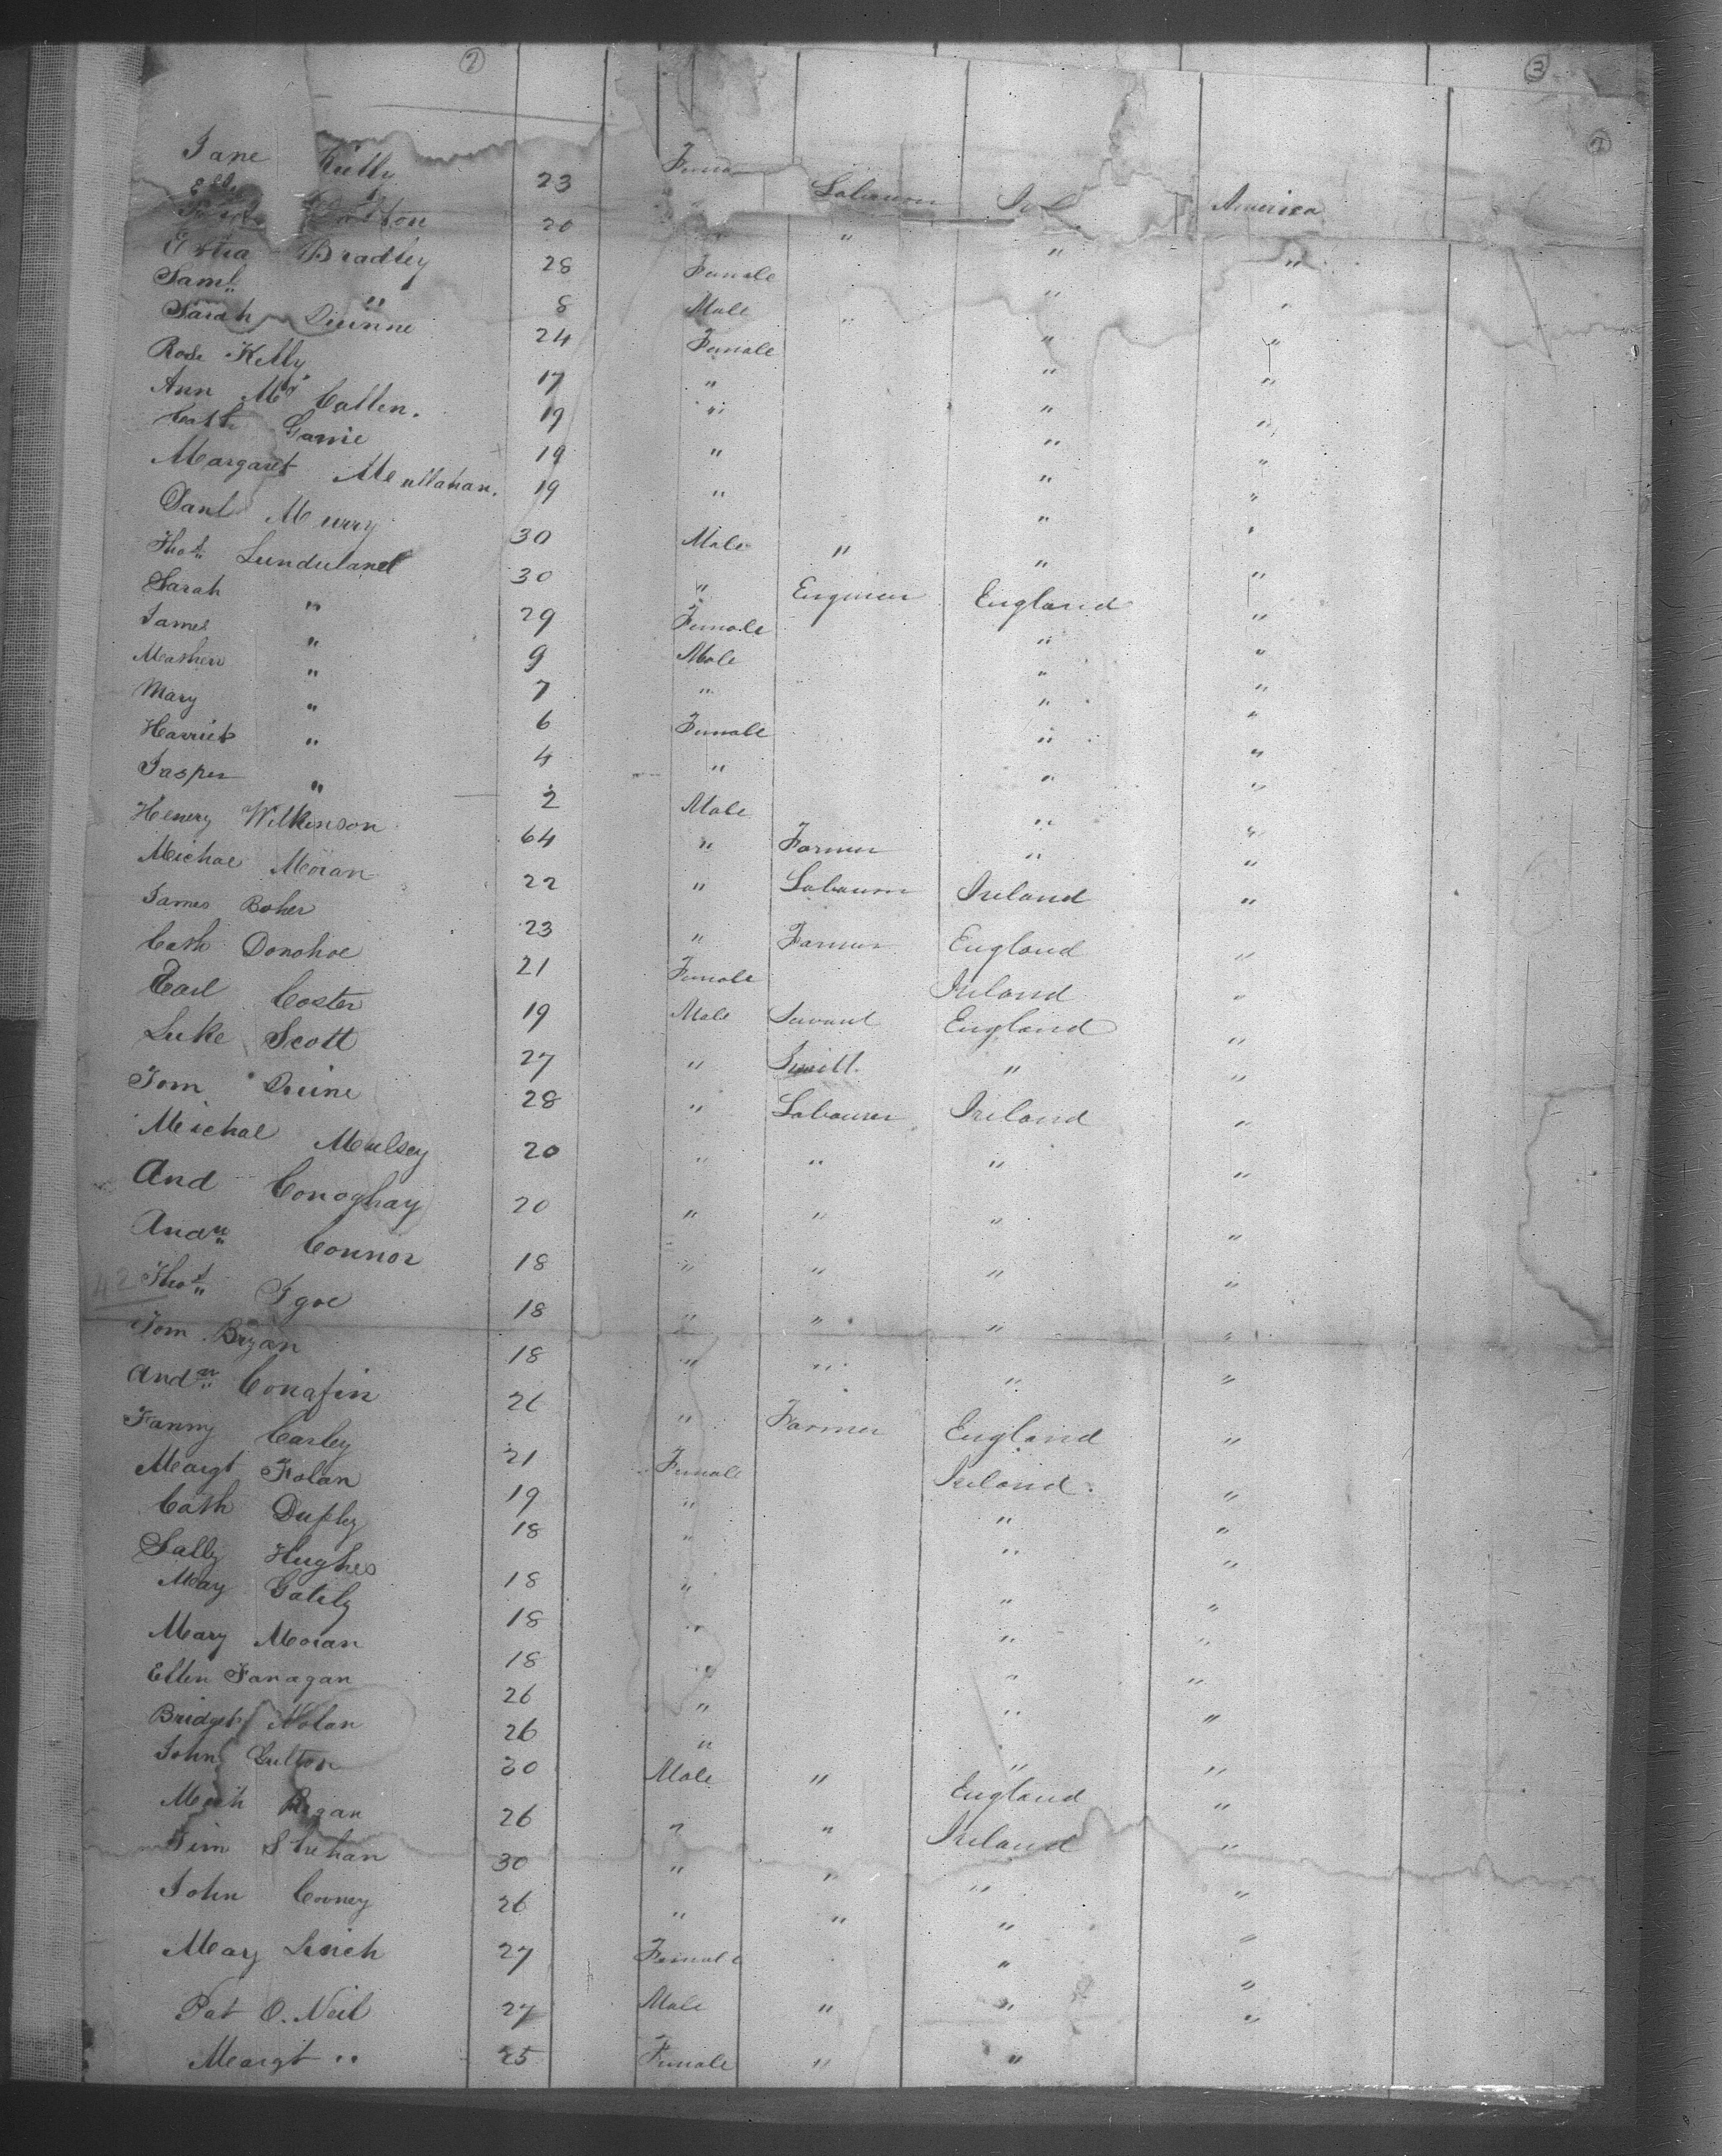 2 3
2
Jane Kelly 23 Fema
Dolton 20 " Labourer Irel America
Bradley 28 Female " " "
Saml " 8 Male " "
Sarah Quinne 24 Female " " "
Rose Kelly 17 " " "
Ann Mc Callen. 19 " " "
Cath Garrie 19 " " "
Margaret Mc ullahan. 19 " " "
Danl Murry 30 Male " " "
Thos Lunduland 30 " Engineer England "
Sarah " 29 Female " "
James " 9 Male " "
Mathew " 7 " " "
Mary " 6 Female " "
Harriet " 4 " " "
Jasper " 2 Male " "
Henery Wilkinson 64 " Farmer " "
Michael Moran 22 " Labourer Ireland "
James Boher 23 " Farmer England "
Cath Donohoe 21 Female Ireland "
Carl Coster 19 Male Servant England "
Luke Scott 27 " Smith " "
Tom Quine 28 " Labourer Ireland "
Michal Mulsey 20 " " " "
And Conoghay 20 " " " "
Andw Connor 18 " " " "
42 Thos Igoe 18 " " " "
Tom Bryan 18 " " " "
Andw Conafin 26 " Farmer England "
Fanny Carley 21 Female Ireland. "
Margt Folan 19 " " "
Cath Duffy 18 " " "
Sally Hughes 18 " " "
May Gately 18 " " "
Mary Moran 18 " " "
Ellen Fanagan 26 " " "
Bridget Nolan 26 " " "
John Gulton 30 Male " England "
Mich Regan 26 " " Ireland "
Tim Shehan 30 " " " "
John Coney 26 " " " "
Mary Linch 27 Female " "
Pat O. Neil 27 Male " " "
Margt " 25 Female " "